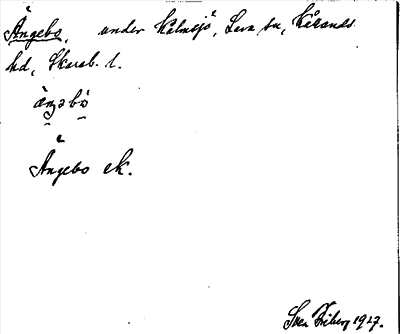 Ängebo, under Kålmsjö, Leru sn, Kåkinds
hd, Skarab. l.
äŋəbω
Ängebo ek.
Sven Friberg 1927.